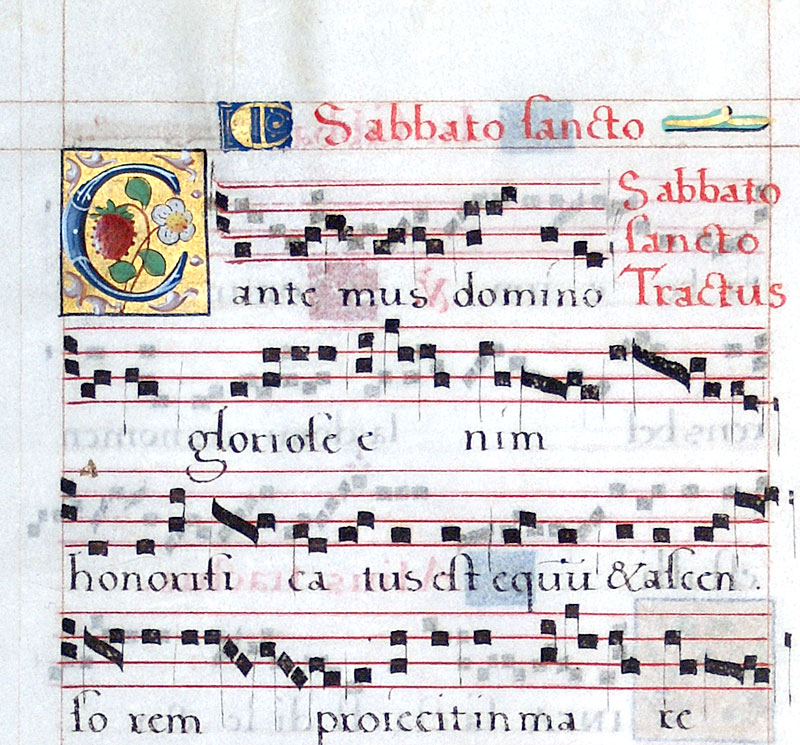 Sabbato sancto
Sabbato
sancto
Tractus
Cante mus domino
gloriose e nim
honorifi ca tus est equũ & ascen
so rem proiecit in ma re